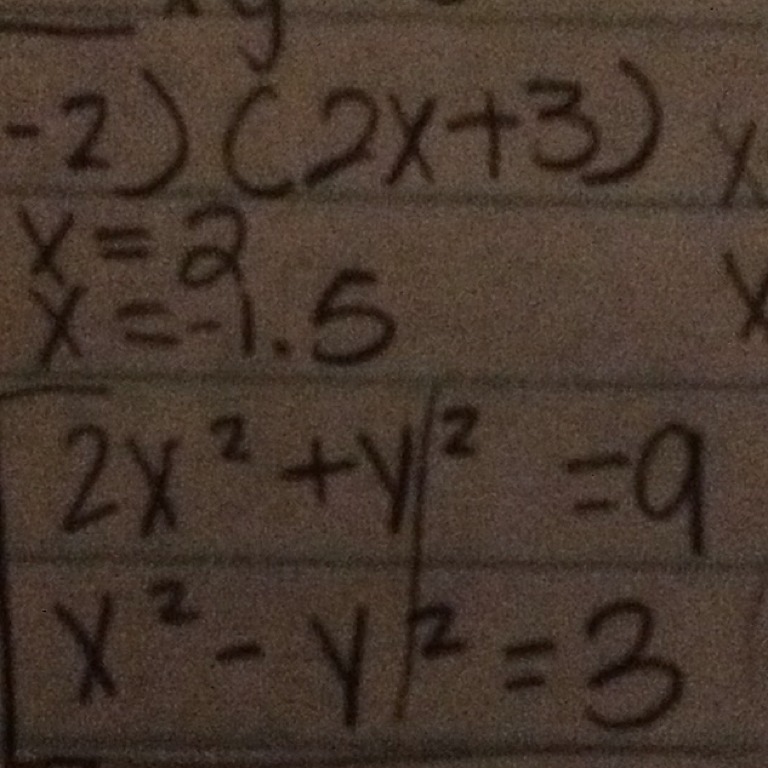 xy
-2) (2x+3) x
x=2
x=-1.5 x
2x² +y² =9
x² - y² =3